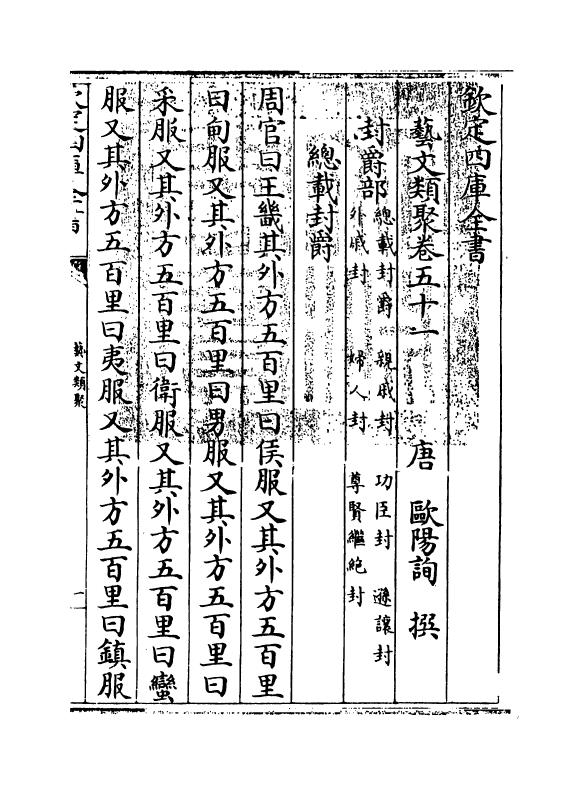 欽定四庫全書
藝文類聚卷五十一　　唐　歐陽詢　撰
封爵部
總載封爵　親戚封　功臣封　遜讓封
外戚封　婦人封　尊賢繼絶封
總載封爵
周官曰王畿其外方五百里曰侯服又其外方五百里
曰甸服又其外方五百里曰男服又其外方五百里曰
采服又其外方五百里曰衛服又其外方五百里曰蠻
服又其外方五百里曰夷服又其外方五百里曰鎮服
藝文類聚